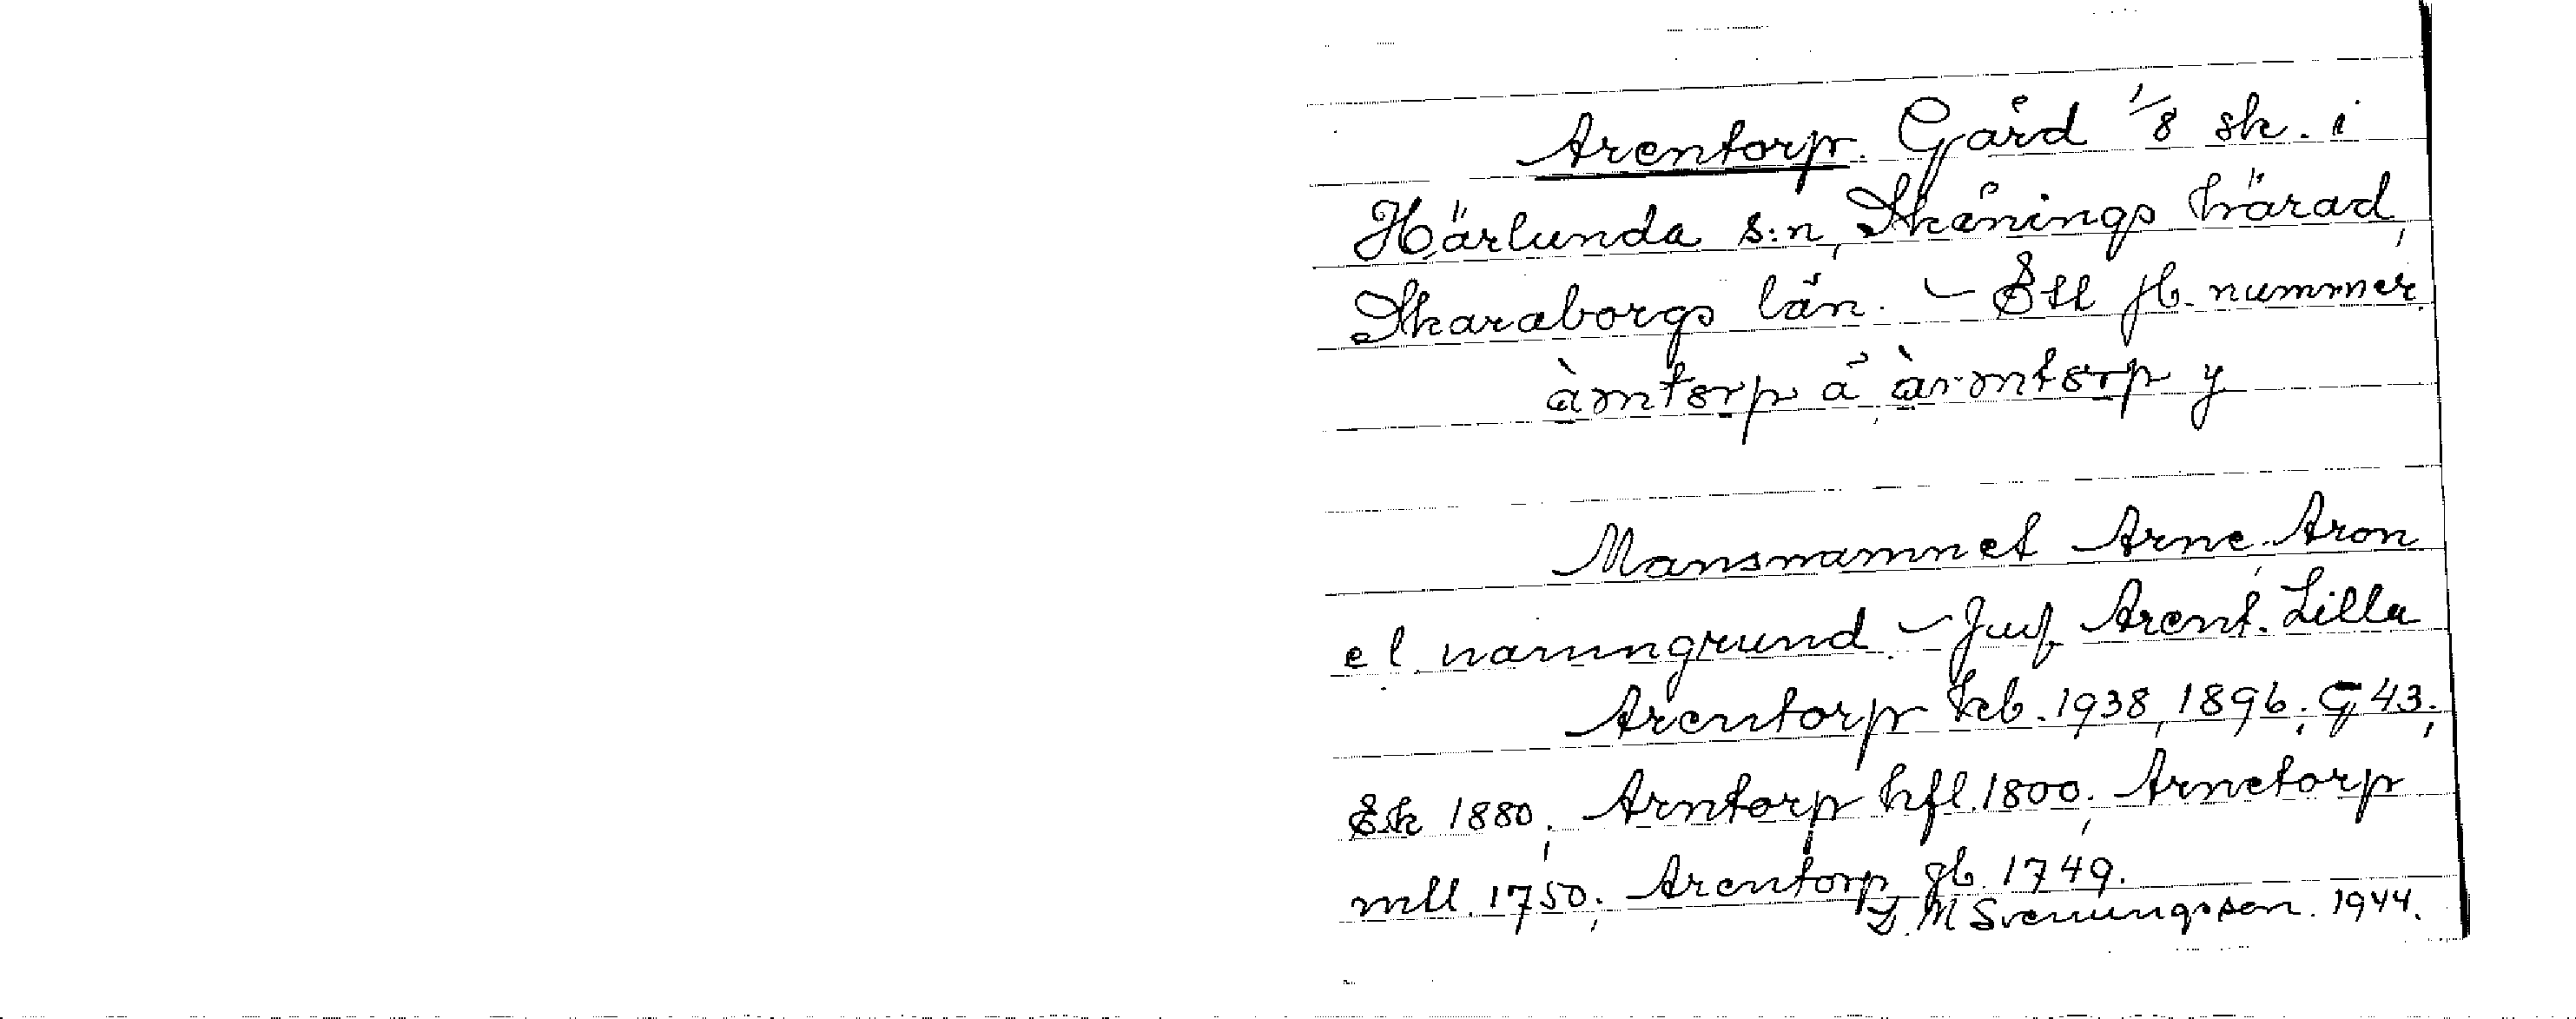 Arentorp. Gård 1/8 sk. i
Härlunda s:n, Skånings härad,
Skaraborgs län. – Ett jb. nummer.
àrntorp å àrntorp y
Mansnamnet Arne, Aron
el. namngrund. – Jmf. Arent. Lilla
Arentorp hcb. 1938, 1896; G 43;
Ek 1880; Arntorp hfl. 1800; Arnetorp
mll. 1750; Arentorp gb. 1749.
S. M Svenungsson. 1944.